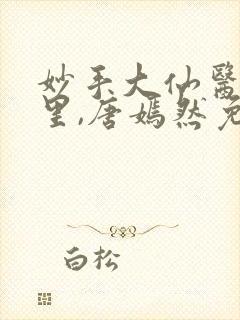 妙手大仙醫
里,唐嫣然免
白松